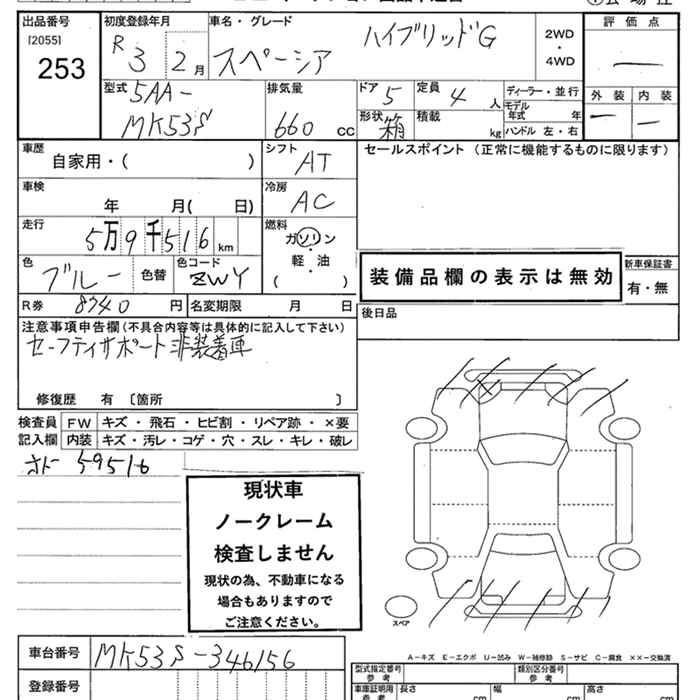 出品番号 初度登録年月 車名・グレード 評価点
[2055] R 3 2月 スペーシア ハイブリッドG 2WD・4WD
253
外装 内装
型式 排気量 ドア 5 定員 4人 ディーラー・並行
5AA-MK53S 660 cc 形状 箱 積載 kg モデル年式 年
ハンドル 左・右
車歴 シフト セールスポイント (正常に機能するものに限ります)
自家用・( ) AT
車検 冷房
年 月( 日) AC
走行 燃料
5万9千516km ガソリン・軽油
( )
色 色替 色コード
ブルー ZWY
装備品欄の表示は無効
新車保証書
有・無
R券 8740円 名変期限 月 日
後日品
注意事項申告欄(不具合内容等は具体的に記入して下さい)
セーフティサポート非装着車
修復歴 有 〔箇所 〕
検査員記入欄 FW キズ・飛石・ヒビ割・リペア跡・×要
内装 キズ・汚レ・コゲ・穴・スレ・キレ・破レ
59516
現状車
ノークレーム
検査しません
現状の為、不動車になる
場合もありますので
ご注意ください。
スペア
A-キズ E-エクボ U-凹み W-補修跡 S-サビ C-腐食 ××-交換済
車台番号 MK53S-346156
登録番号
型式指定番号 参考 類別区分番号 参考
車庫証明用 参考 長さ cm 幅 cm 高さ cm